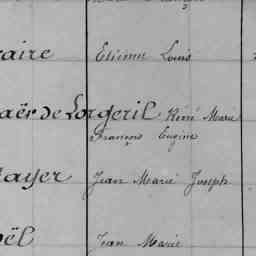 raire Etienne Louis
aër de Lorgeril René Marie
François Eugène
layer Jean Marie Joseph
oël Jean Marie